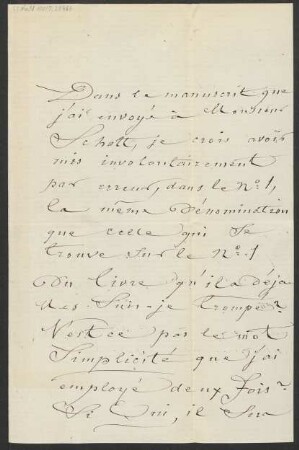 Dans le manuscrit que
j'ai envoyé à Monsieur
Schott, je crois avoir
mis involontairement
par erreur, dans le No. 1,
la même dénomination
que celle qui se
trouve sur le No. 1
du livre qu'il a déjà
Me suis-je trompé?
N'est ce pas le mot
Simplicité que j'ai
employé deux fois?
Si oui, il